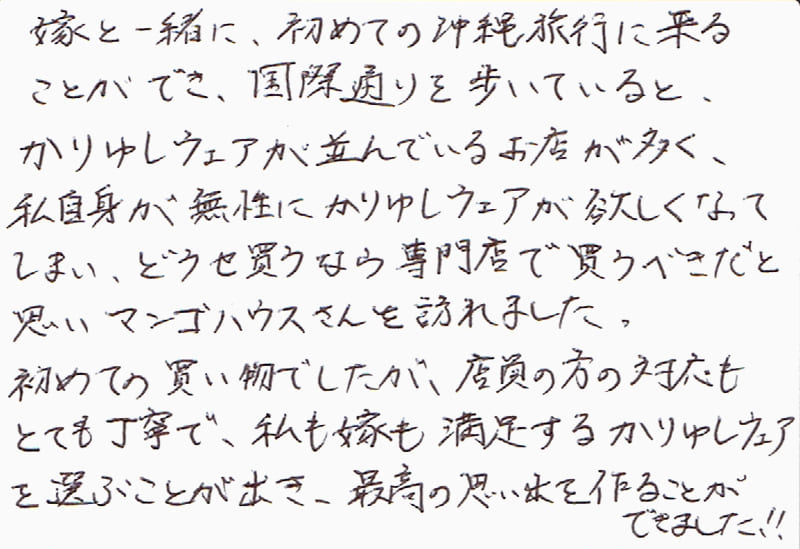 嫁と一緒に、初めての沖縄旅行に来る
ことができ、国際通りを歩いていると、
かりゆしウェアが並んでいるお店が多く、
私自身が無性にかりゆしウェアが欲しくなって
しまい、どうせ買うなら専門店で買うべきだと
思いマンゴハウスさんを訪れました。
初めての買い物でしたが、店員の方の対応も
とても丁寧で、私も嫁も満足するかりゆしウェア
を選ぶことが出き、最高の思い出を作ることが
できました!!